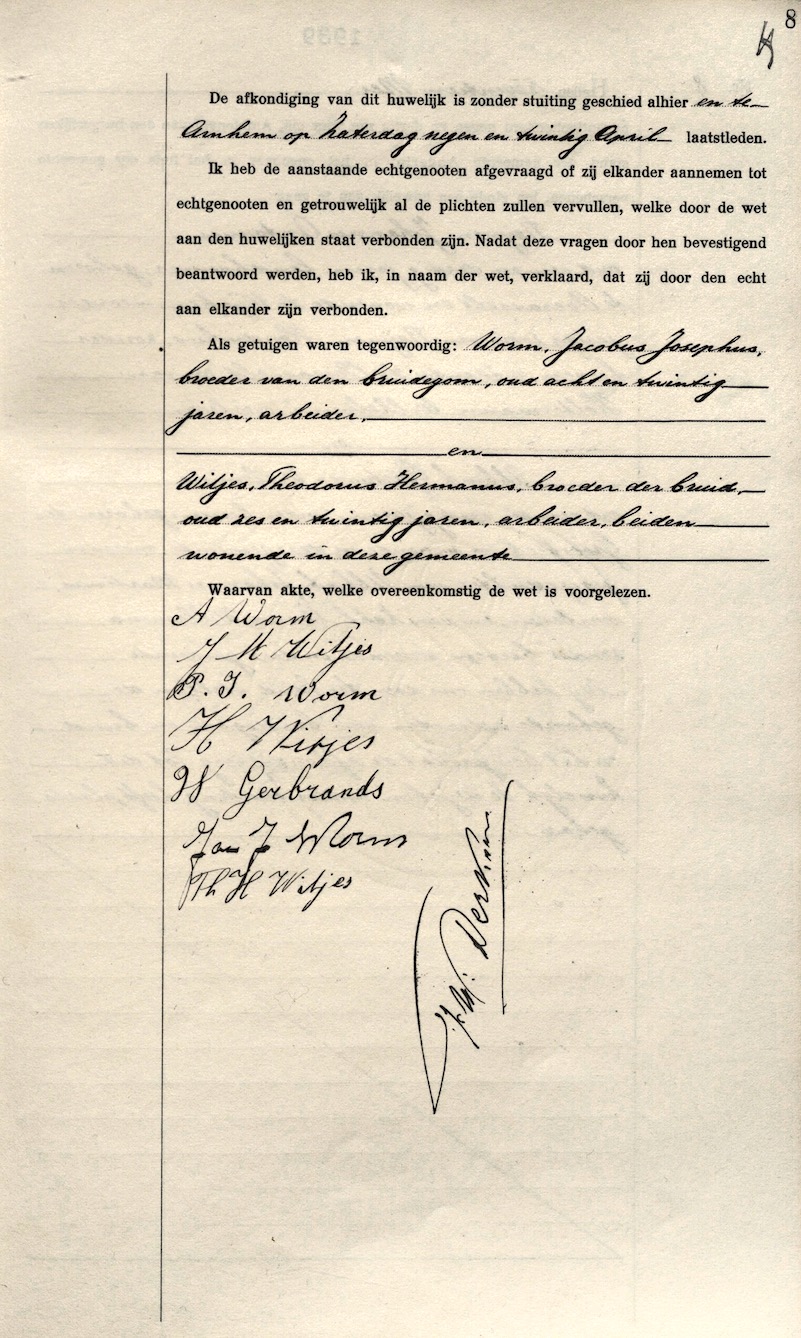 8
De afkondiging van dit huwelijk is zonder stuiting geschied alhier en te
Arnhem op Zaterdag negen en twintig April laatstleden.
Ik heb de aanstaande echtgenooten afgevraagd of zij elkander aannemen tot
echtgenooten en getrouwelijk al de plichten zullen vervullen, welke door de wet
aan den huwelijken staat verbonden zijn. Nadat deze vragen door hen bevestigend
beantwoord werden, heb ik, in naam der wet, verklaard, dat zij door den echt
aan elkander zijn verbonden.
Als getuigen waren tegenwoordig: Worm, Jacobus Josephus,
broeder van den bruidegom, oud acht en twintig
jaren, arbeider,
en
Witjes, Theodorus Hermanus, broeder der bruid,
oud zes en twintig jaren, arbeider, beiden
wonende in deze gemeente
Waarvan akte, welke overeenkomstig de wet is voorgelezen.
A Worm
J M Witjes
P. J. Worm
H Witjes
W Gerbrands
Jac J Worm
Th H Witjes